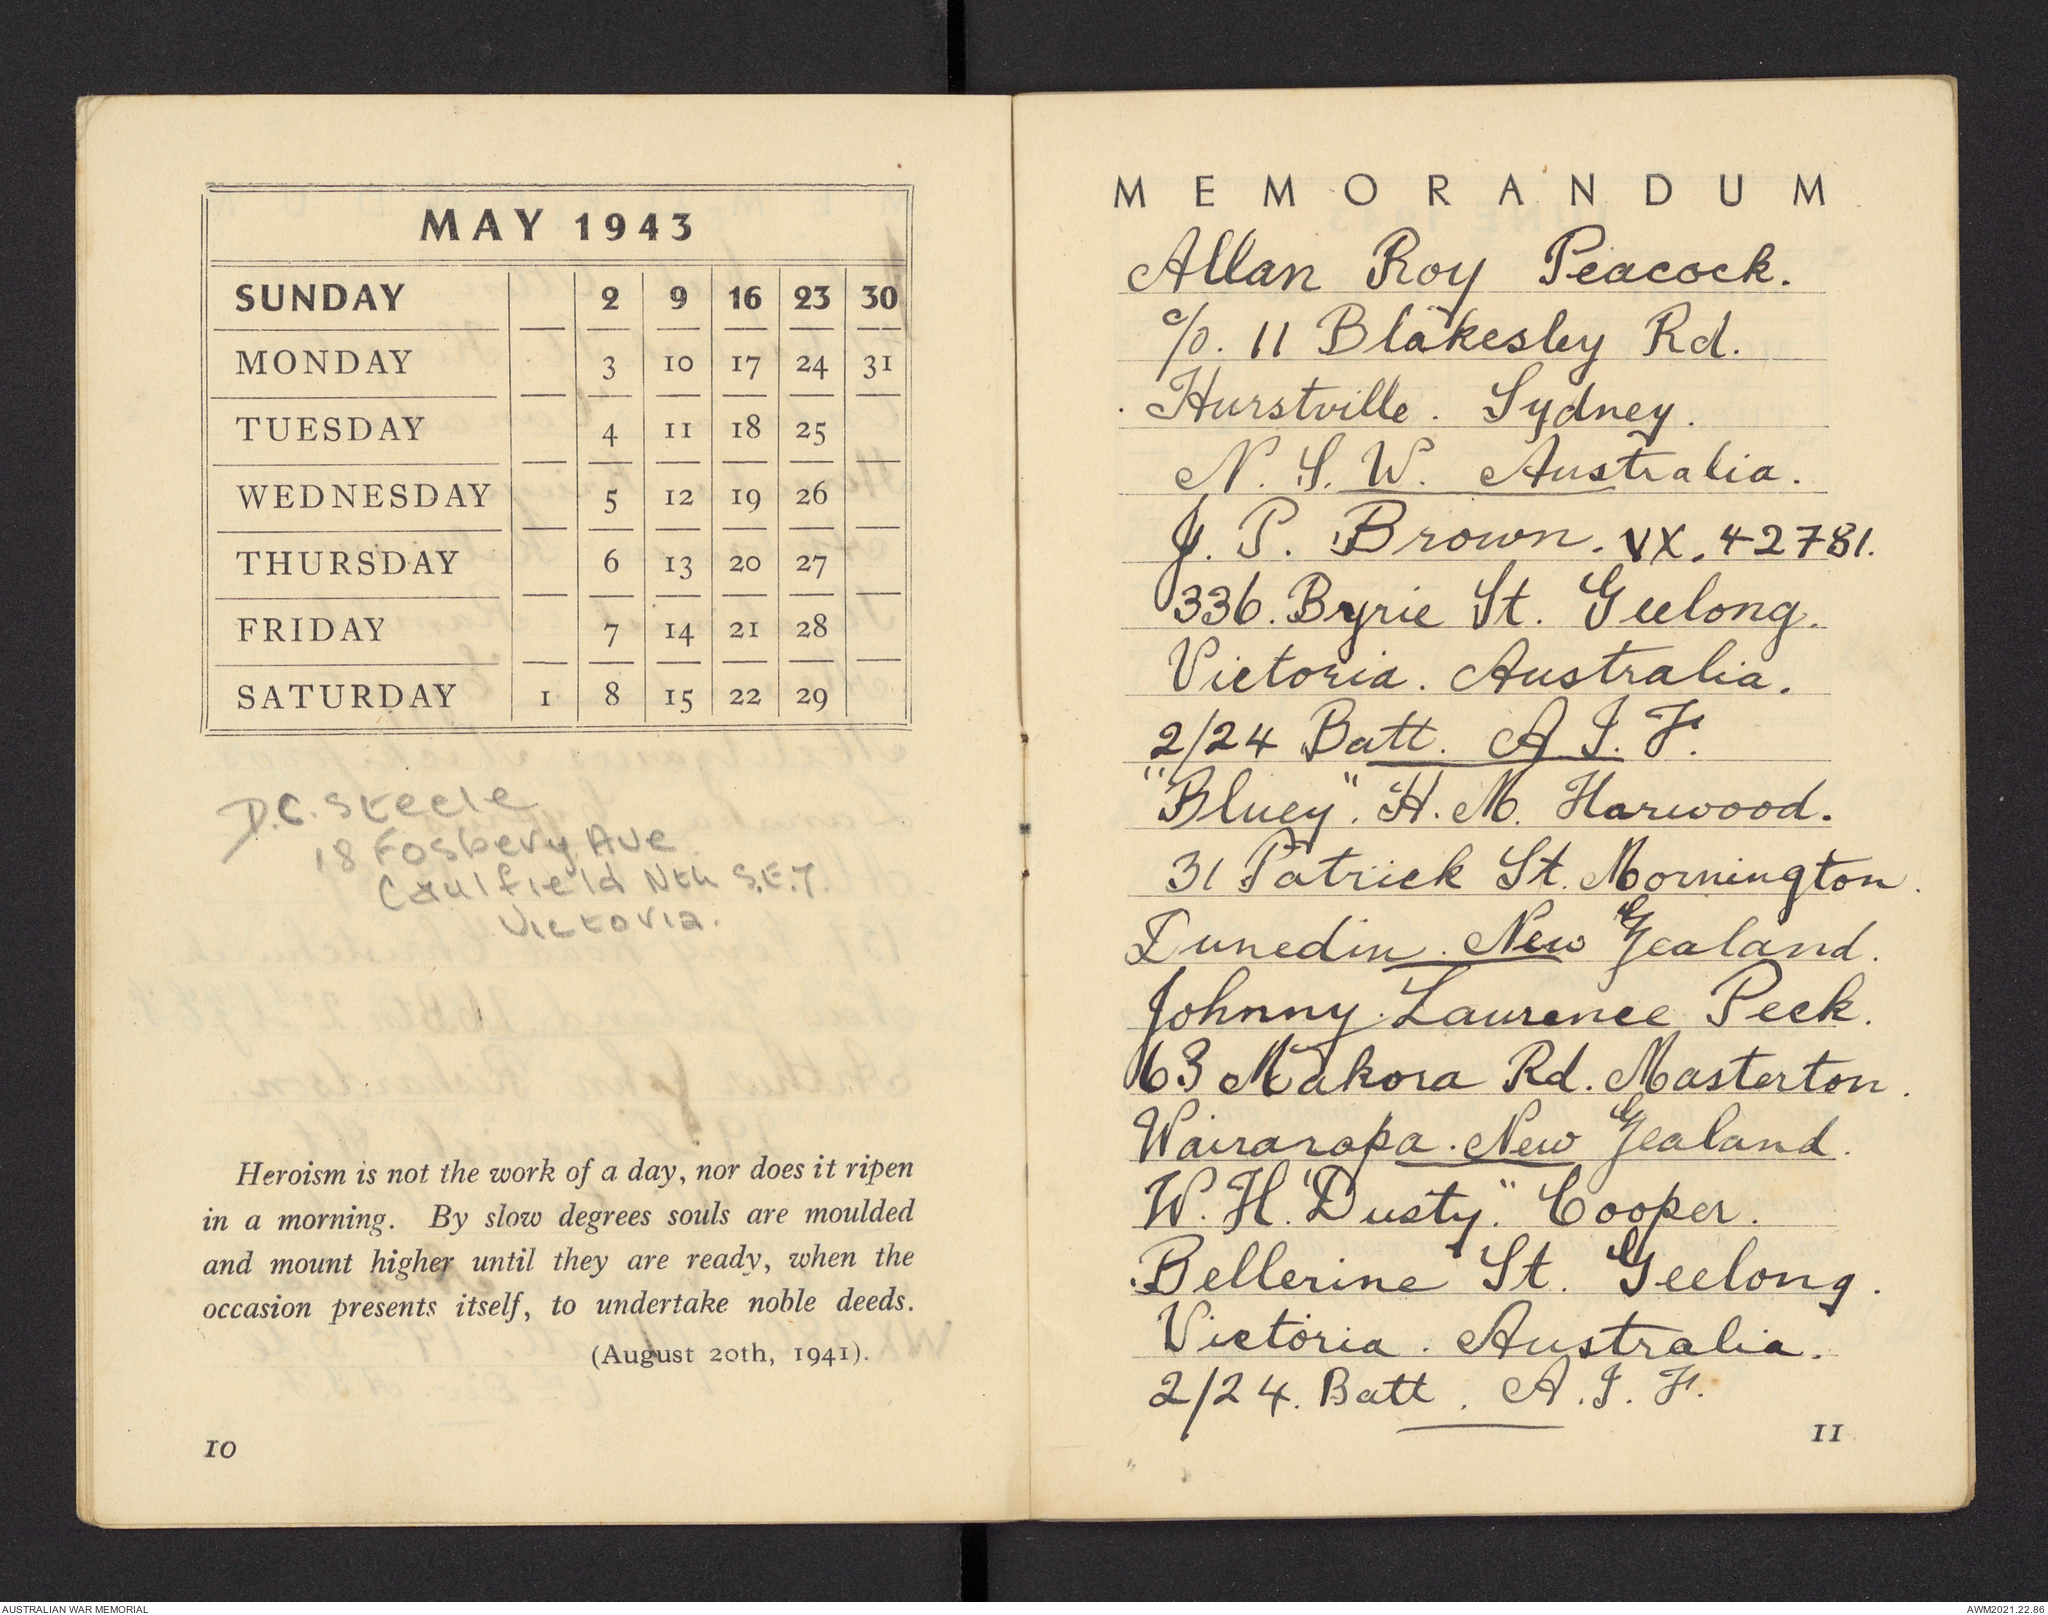 MAY 1943
SUNDAY 2 9 16 23 30
MONDAY 3 10 17 24 31
TUESDAY 4 11 18 25
WEDNESDAY 5 12 19 26
THURSDAY 6 13 20 27
FRIDAY 7 14 21 28
SATURDAY 1 8 15 22 29
D.C. Steele
18 Fosbery Ave
Caulfield Nth S.E.7.
Victoria.
Heroism is not the work of a day, nor does it ripen
in a morning. By slow degrees souls are moulded
and mount higher until they are ready, when the
occasion presents itself, to undertake noble deeds.
(August 20th, 1941).
10
MEMORANDUM
Allan Roy Peacock.
c/o. 11 Blakesley Rd.
Hurstville. Sydney.
N. S. W. Australia.
J. P. Brown. VX. 42781.
336. Byrie St. Geelong.
Victoria. Australia.
2/24 Batt. A I. F.
"Bluey". H. M. Harwood.
31 Patrick St. Mornington.
Dunedin. New Zealand.
Johnny Laurence Peek.
63 Makora Rd. Masterton.
Wairarapa. New Zealand.
W. H. "Dusty." Cooper.
Bellerine St. Geelong.
Victoria. Australia.
2/24. Batt. A. I. F.
11
AUSTRALIAN WAR MEMORIAL
AWM2021.22.86